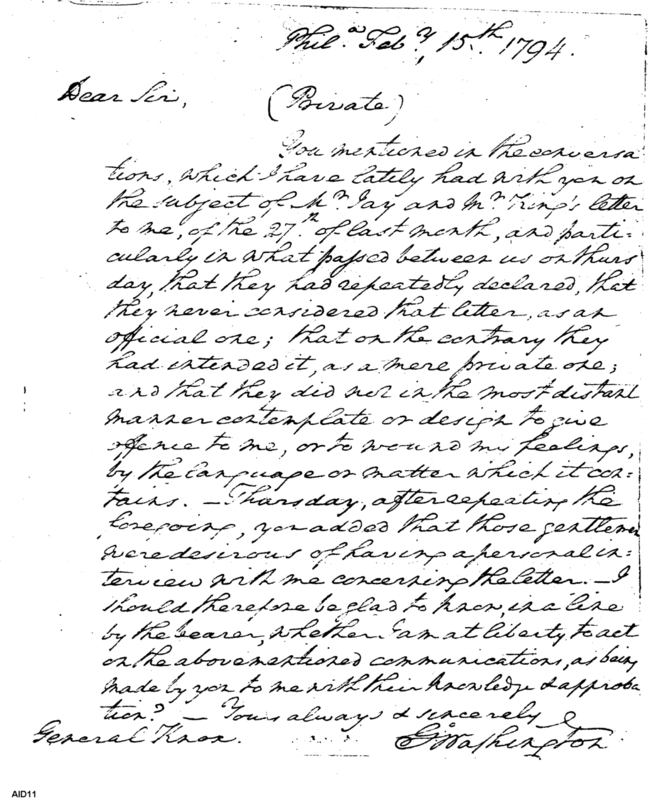 Phil.a Feb.y 15th 1794.
Dear Sir, (Private)
You mentioned in the conversa
tions, which I have lately had with you on
the subject of Mr. Jay and Mr. King's letter
to me, of the 27th of last month, and parti=
cularly in what passed between us on thurs
day, that they had repeatedly declared, that
they never considered that letter, as an
official one; that on the contrary they
had intended it, as a mere private one;
and that they did not in the most distant
manner contemplate or design to give
offence to me, or to wound my feelings,
by the language or matter which it con=
tains. — Thursday, after repeating the
foregoing, you added that those gentlemen
were desirous of having a personal in=
terview with me concerning the letter. — I
should therefore be glad to know, in a line
by the bearer, whether I am at liberty, to act
on the abovementioned communications, as being
made by you to me with their knowledge & approba
tion? — Yours always & sincerely
General Knox. G. Washington
AID11